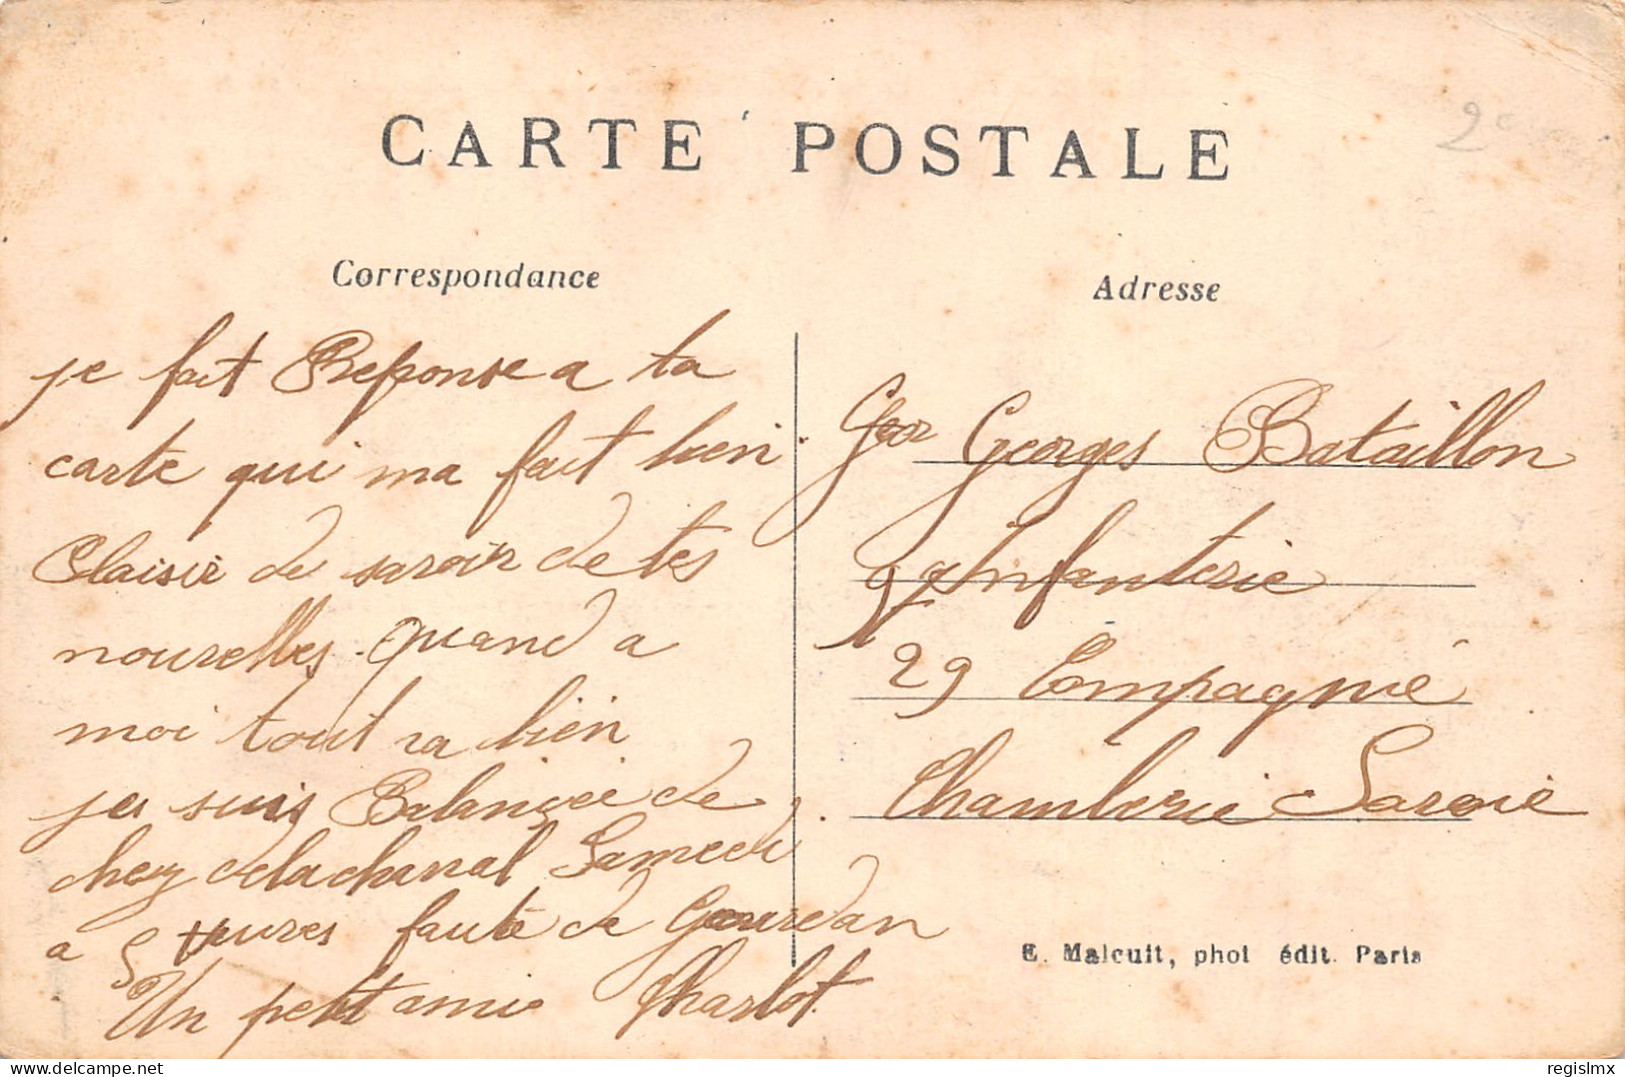 CARTE POSTALE
2€
Correspondance
Adresse
je fait Reponse a ta
carte qui ma fait bien
Plaisir de savoir de tes
nouvelles quand a
moi tout va bien
je suis Balancée de
chez delachanal Samedi
a 5 heures faute de Gourdan
Un petit amie Charlot
Georges Bataillon
97 Infanterie
29 Compagnie
Chamberie Savoie
E. Malcuit, phot édit. Paris
regislmx